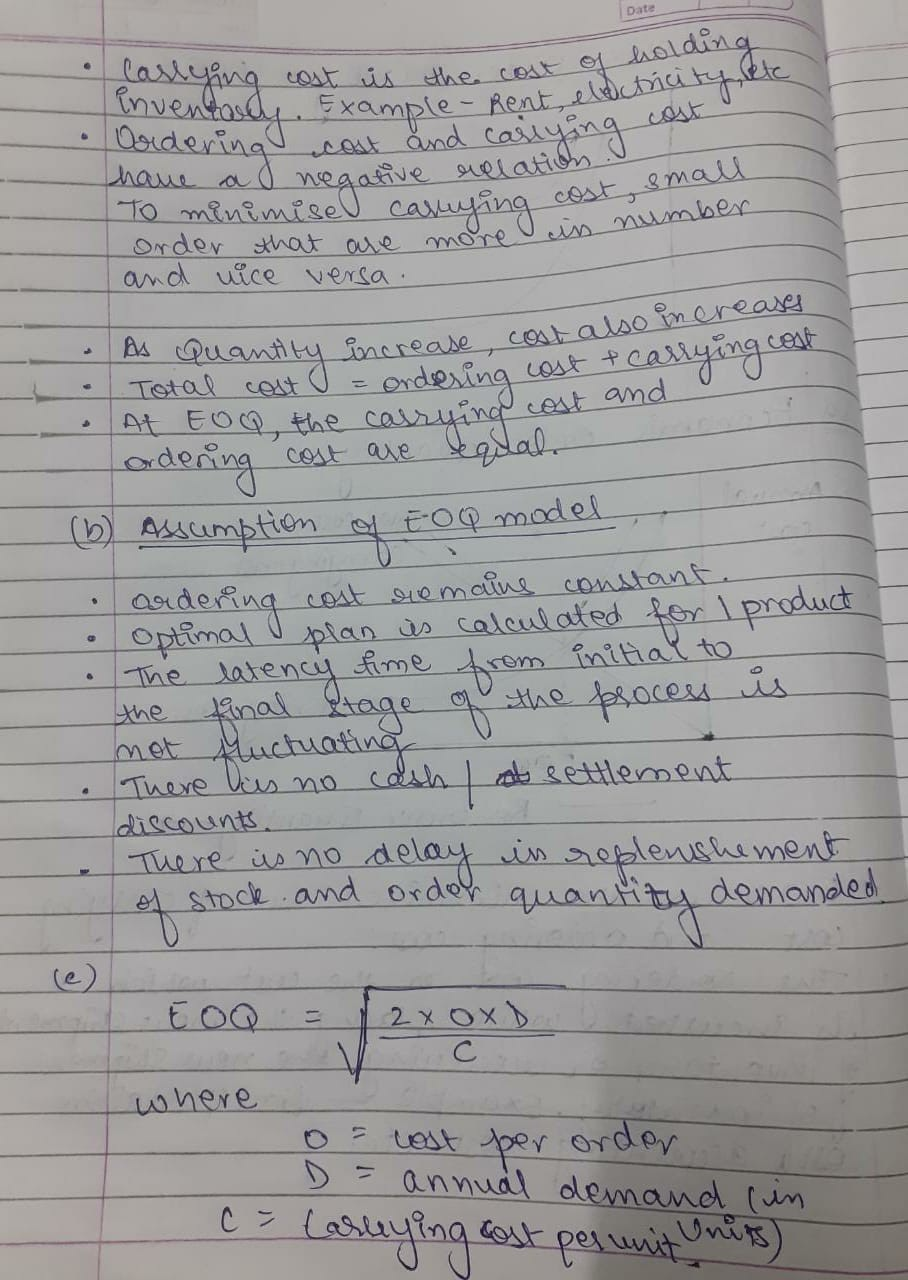 Date
• Carrying cost is the cost of holding
inventory. Example - Rent, electricity, etc
• Ordering cost and carrying cost
have a negative relation.
To minimise carrying cost, small
order that are more in number
and vice versa.
• As Quantity increase, cost also increases
• Total cost = ordering cost + carrying cost
• At EOQ, the carrying cost and
ordering cost are equal.
(b) Assumption of EOQ model
• ordering cost remains constant.
• Optimal plan is calculated for 1 product
• The latency time from initial to
the final stage of the process is
not fluctuating
• There is no cash / settlement
discounts.
• There is no delay in replenshement
of stock and order quantity demanded.
(c)
EOQ = √ 2 × O × D
C
where
O = cost per order
D = annual demand (in
Units)
C = Carrying cost per unit.